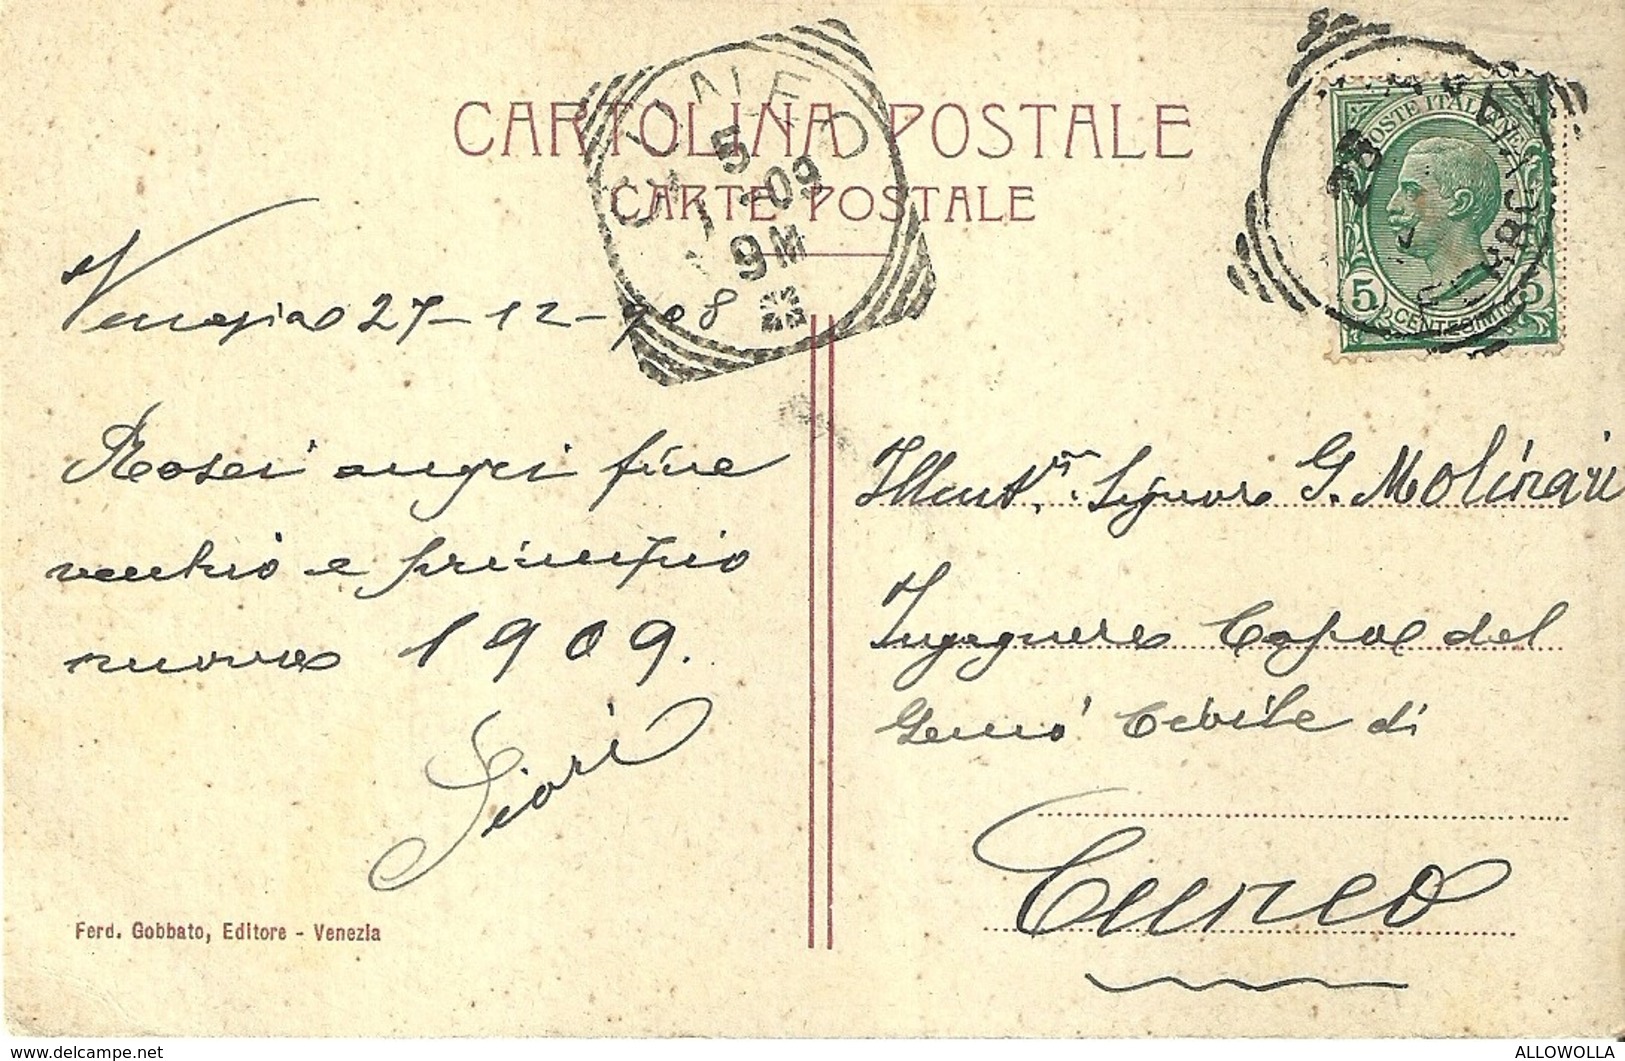 CARTOLINA POSTALE
CARTE POSTALE
5
1-09
9M
POSTE ITALIANE
5 CENTESIMI 5
Venezia 27-12-908
Rosei auguri fine
vecchio e principio
nuovo 1909.
Fiori
Ferd. Gobbato, Editore - Venezia
Illust.mo Signore G. Molinari
Ingegnere Capo del
Genio Civile di
Cuneo
www.delcampe.net
ALLOWOLLA